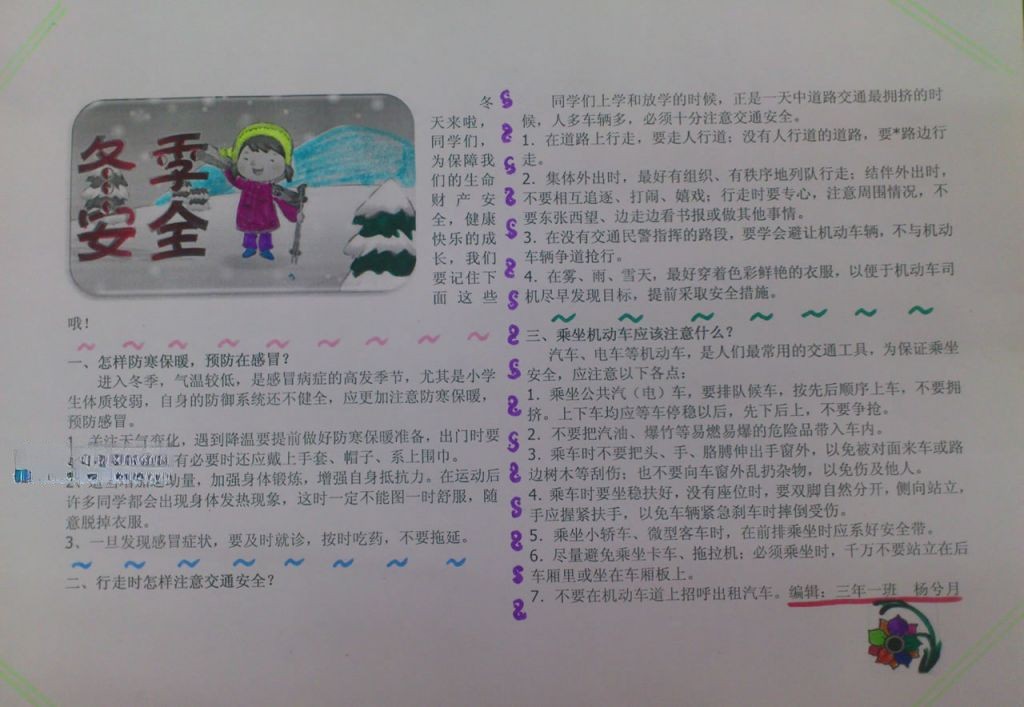 冬季
安全
冬
天来啦，
同学们，
为保障我
们的生命
财产安
全，健康
快乐的成
长，我们
要记住下
面这些
哦！
一、怎样防寒保暖，预防在感冒？
进入冬季，气温较低，是感冒病症的高发季节，尤其是小学
生体质较弱，自身的防御系统还不健全，应更加注意防寒保暖，
预防感冒。
1、关注天气变化，遇到降温要提前做好防寒保暖准备，出门时要
有必要时还应戴上手套、帽子、系上围巾。
动量，加强身体锻炼，增强自身抵抗力。在运动后
许多同学都会出现身体发热现象，这时一定不能图一时舒服，随
意脱掉衣服。
3、一旦发现感冒症状，要及时就诊，按时吃药，不要拖延。
二、行走时怎样注意交通安全？
同学们上学和放学的时候，正是一天中道路交通最拥挤的时
候，人多车辆多，必须十分注意交通安全。
1．在道路上行走，要走人行道；没有人行道的道路，要*路边行
走。
2．集体外出时，最好有组织、有秩序地列队行走；结伴外出时，
不要相互追逐、打闹、嬉戏；行走时要专心，注意周围情况，不
要东张西望、边走边看书报或做其他事情。
3．在没有交通民警指挥的路段，要学会避让机动车辆，不与机动
车辆争道抢行。
4．在雾、雨、雪天，最好穿着色彩鲜艳的衣服，以便于机动车司
机尽早发现目标，提前采取安全措施。
三、乘坐机动车应该注意什么？
汽车、电车等机动车，是人们最常用的交通工具，为保证乘坐
安全，应注意以下各点：
1．乘坐公共汽（电）车，要排队候车，按先后顺序上车，不要拥
挤。上下车均应等车停稳以后，先下后上，不要争抢。
2．不要把汽油、爆竹等易燃易爆的危险品带入车内。
3．乘车时不要把头、手、胳膊伸出手窗外，以免被对面来车或路
边树木等刮伤；也不要向车窗外乱扔杂物，以免伤及他人。
4．乘车时要坐稳扶好，没有座位时，要双脚自然分开，侧向站立，
手应握紧扶手，以免车辆紧急刹车时摔倒受伤。
5．乘坐小轿车、微型客车时，在前排乘坐时应系好安全带。
6．尽量避免乘坐卡车、拖拉机；必须乘坐时，千万不要站立在后
车厢里或坐在车厢板上。
7．不要在机动车道上招呼出租汽车。编辑：三年一班 杨兮月